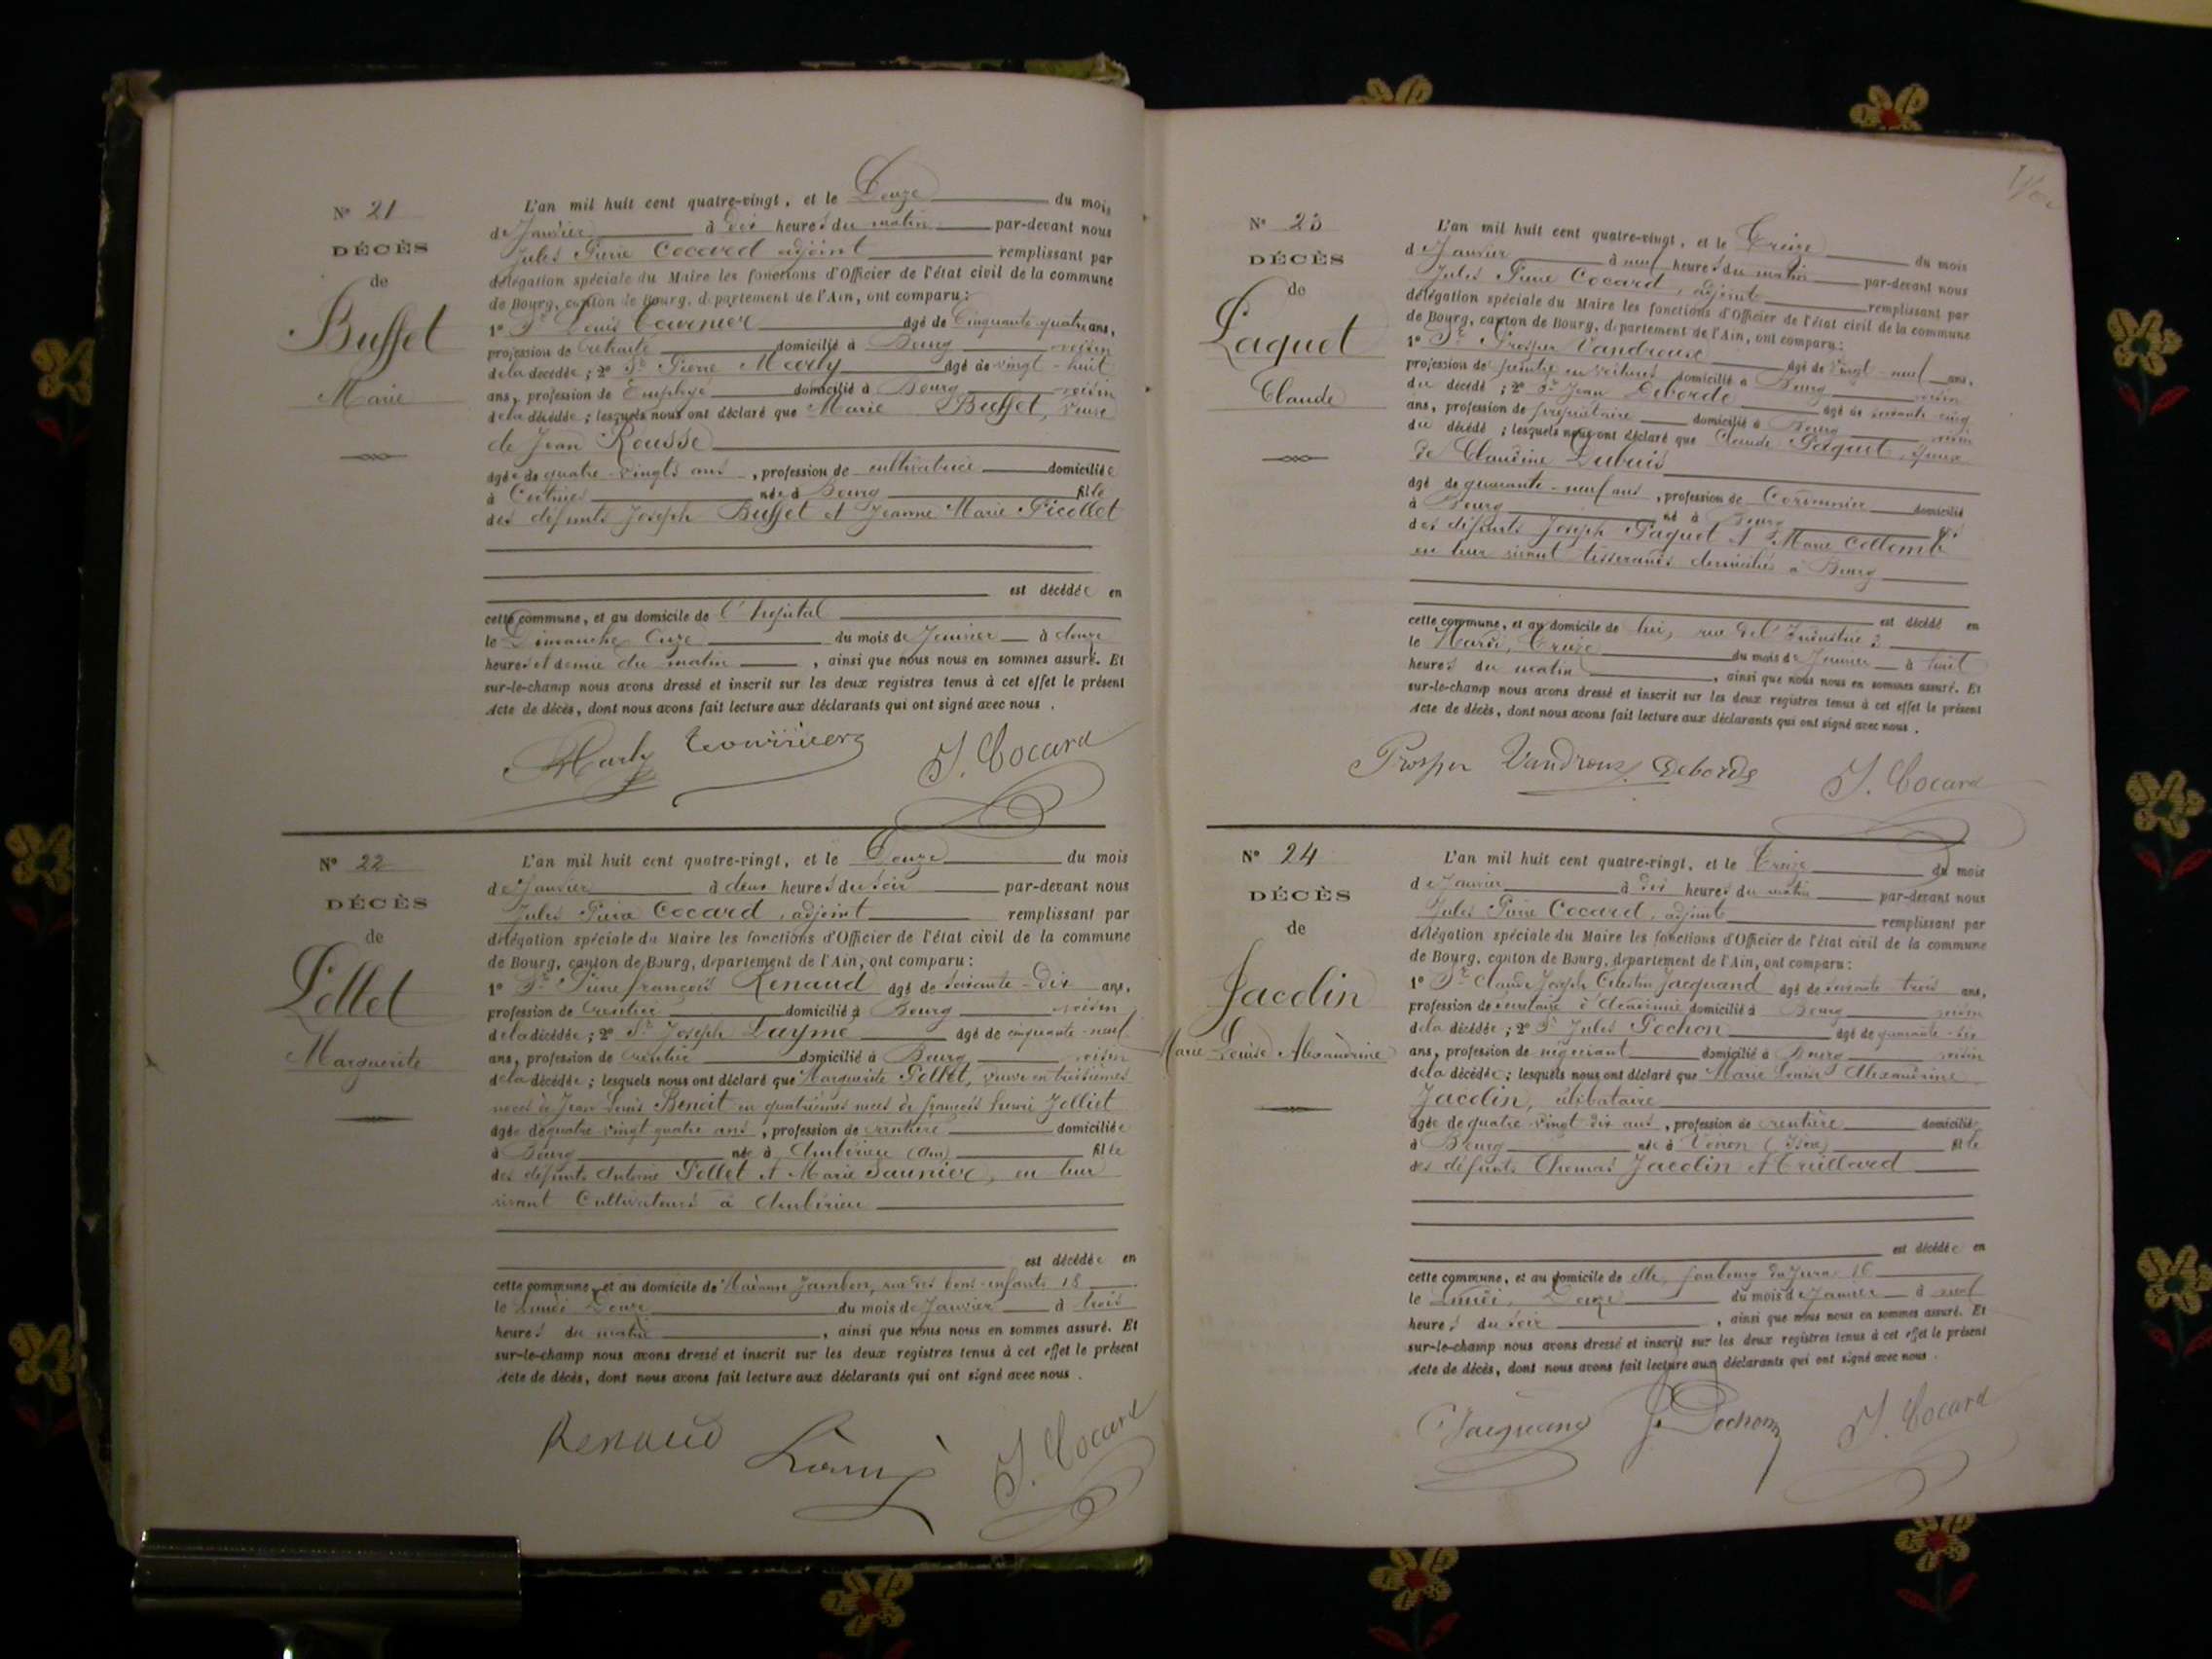 N° 21
DÉCÈS
de
Buffet
Marie
L'an mil huit cent quatre-vingt, et le Douze du mois
de Janvier à dix heures du matin par-devant nous
Jules Pierre Cocard adjoint remplissant par
délégation spéciale du Maire les fonctions d'Officier de l'état civil de la commune
de Bourg, canton de Bourg, département de l'Ain, ont comparu :
1° Sr Louis Tournier âgé de Cinquante quatre ans,
profession de retraité domicilié à Bourg voisin
de la décédée ; 2° Sr Pierre Marly âgé de vingt-huit
ans, profession de Employé domicilié à Bourg voisin
de la décédée ; lesquels nous ont déclaré que Marie Buffet, veuve
de Jean Rousse
âgée de quatre-vingts ans, profession de cultivatrice domiciliée
à Certines née à Bourg fille
des défunts Joseph Buffet et Jeanne Marie Picollet
est décédée en
cette commune, et au domicile de l'hôpital
le Dimanche Onze du mois de Janvier à douze
heures et demie du matin, ainsi que nous nous en sommes assuré. Et
sur-le-champ nous avons dressé et inscrit sur les deux registres tenus à cet effet le présent
Acte de décès, dont nous avons fait lecture aux déclarants qui ont signé avec nous.
Marly Tournier J. Cocard
N° 22
DÉCÈS
de
Pollet
Marguerite
L'an mil huit cent quatre-vingt, et le Douze du mois
de Janvier à deux heures du soir par-devant nous
Jules Pierre Cocard, adjoint remplissant par
délégation spéciale du Maire les fonctions d'Officier de l'état civil de la commune
de Bourg, canton de Bourg, département de l'Ain, ont comparu :
1° Sr Pierre françois Renaud âgé de soixante-dix ans,
profession de rentier domicilié à Bourg voisin
de la décédée ; 2° Sr Joseph Laymé âgé de cinquante-neuf
ans, profession de rentier domicilié à Bourg voisin
de la décédée ; lesquels nous ont déclaré que Marguerite Pollet, veuve en troisièmes
noces de Jean Louis Benoit en quatrièmes noces de françois henri Jolliet
âgée de quatre-vingt-quatre ans, profession de rentière domiciliée
à Bourg née à Ambérieu (Ain) fille
des défunts Antoine Pollet et Marie Saunier, en leur
vivant Cultivateurs à Ambérieu
est décédée en
cette commune, et au domicile de Madame Jambon, rue des bons-enfants 18
le Lundi Douze du mois de Janvier à trois
heures du matin, ainsi que nous nous en sommes assuré. Et
sur-le-champ nous avons dressé et inscrit sur les deux registres tenus à cet effet le présent
Acte de décès, dont nous avons fait lecture aux déclarants qui ont signé avec nous.
Renaud Laymé J. Cocard
N° 23
DÉCÈS
de
Paquet
Claude
L'an mil huit cent quatre-vingt, et le Treize du mois
de Janvier à neuf heures du matin par-devant nous
Jules Pierre Cocard, adjoint remplissant par
délégation spéciale du Maire les fonctions d'Officier de l'état civil de la commune
de Bourg, canton de Bourg, département de l'Ain, ont comparu :
1° Sr Prosper Vandroux âgé de vingt-neuf ans,
profession de peintre en voitures domicilié à Bourg voisin
du décédé ; 2° Sr Jean Deborde âgé de soixante cinq
ans, profession de propriétaire domicilié à Bourg voisin
du décédé ; lesquels nous ont déclaré que Claude Paquet, époux
de Claudine Dubuis
âgé de quarante-neuf ans, profession de Cordonnier domicilié
à Bourg né à Bourg fils
des défunts Joseph Paquet et Marie Collomb
en leur vivant tisserands domiciliés à Bourg
est décédé en
cette commune, et au domicile de lui, rue de l'Industrie 2
le Mardi, Treize du mois de Janvier à huit
heures du matin, ainsi que nous nous en sommes assuré. Et
sur-le-champ nous avons dressé et inscrit sur les deux registres tenus à cet effet le présent
Acte de décès, dont nous avons fait lecture aux déclarants qui ont signé avec nous.
Prosper Vandroux Deborde J. Cocard
N° 24
DÉCÈS
de
Jacolin
Marie Louise Alexandrine
L'an mil huit cent quatre-vingt, et le Treize du mois
de Janvier à dix heures du matin par-devant nous
Jules Pierre Cocard, adjoint remplissant par
délégation spéciale du Maire les fonctions d'Officier de l'état civil de la commune
de Bourg, canton de Bourg, département de l'Ain, ont comparu :
1° Sr Claude Joseph Célestin Jacquand âgé de soixante trois ans,
profession de secrétaire d'Académie domicilié à Bourg voisin
de la décédée ; 2° Sr Jules Pochon âgé de quarante-six
ans, profession de négociant domicilié à Bourg voisin
de la décédée ; lesquels nous ont déclaré que Marie Louise Alexandrine
Jacolin, célibataire
âgée de quatre-vingt-dix ans, profession de rentière domiciliée
à Bourg née à Voiron (Isère) fille
des défunts Thomas Jacolin et Truillard
est décédée en
cette commune, et au domicile de elle, faubourg du Jura 16
le Lundi, Douze du mois de Janvier à neuf
heures du soir, ainsi que nous nous en sommes assuré. Et
sur-le-champ nous avons dressé et inscrit sur les deux registres tenus à cet effet le présent
Acte de décès, dont nous avons fait lecture aux déclarants qui ont signé avec nous.
C Jacquand J. Pochon J. Cocard